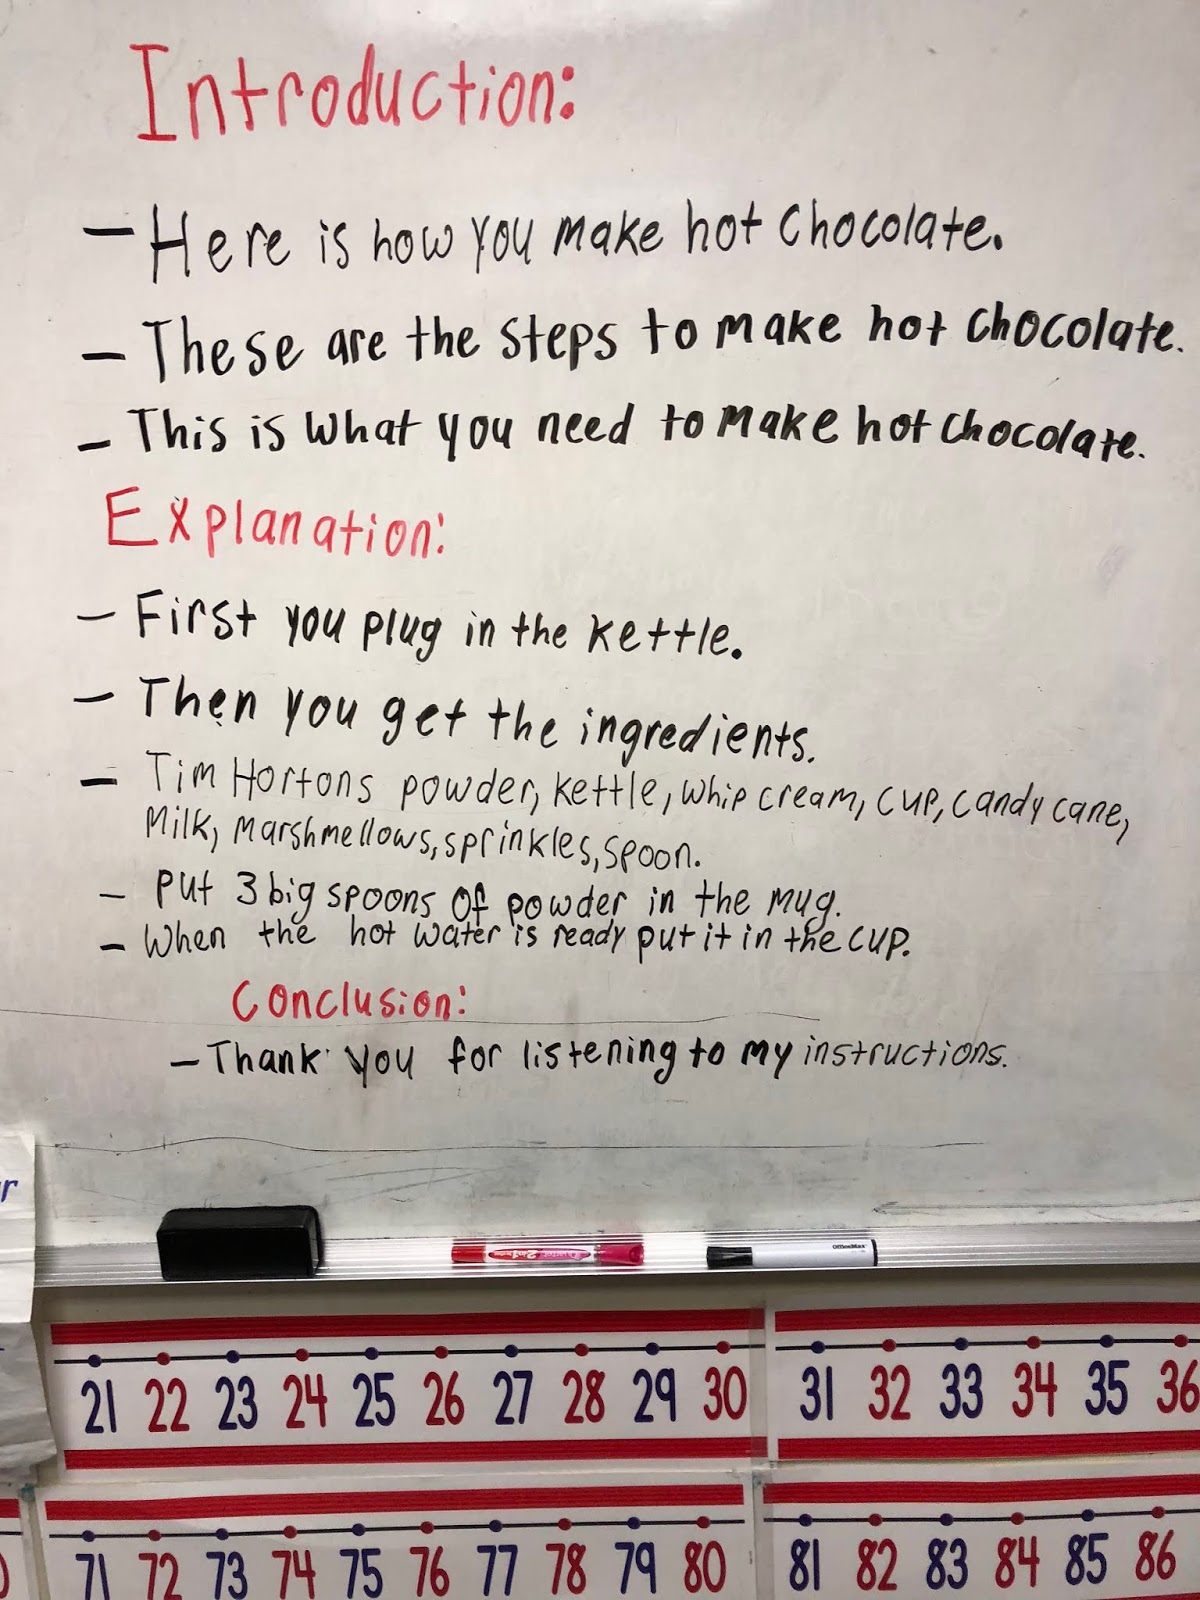 Introduction:
- Here is how you make hot chocolate.
- These are the steps to make hot chocolate.
- This is what you need to make hot chocolate.
Explanation:
- First you plug in the kettle.
- Then you get the ingredients.
- Tim Hortons powder, kettle, whip cream, cup, candy cane,
milk, marshmellows, sprinkles, spoon.
- Put 3 big spoons of powder in the mug.
- When the hot water is ready put it in the cup.
Conclusion:
- Thank you for listening to my instructions.
OfficeMax
21 22 23 24 25 26 27 28 29 30 31 32 33 34 35 36
71 72 73 74 75 76 77 78 79 80 81 82 83 84 85 86